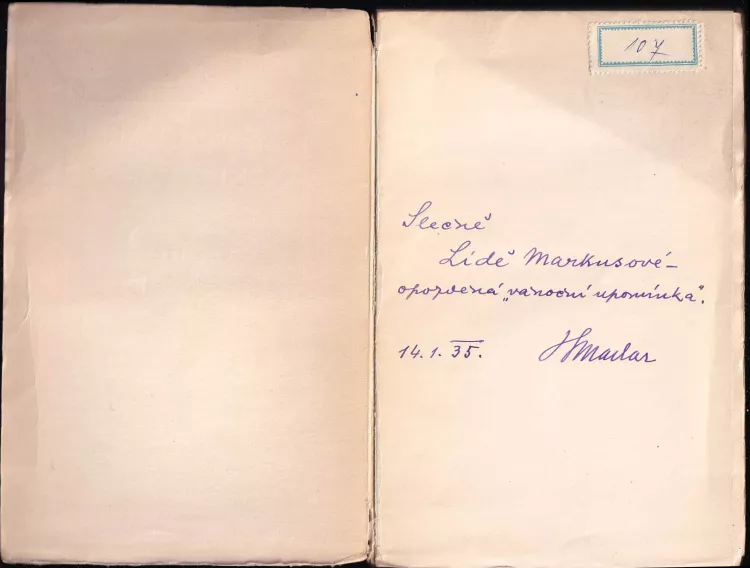 107
Slečně
Lídě Markusové –
opozdená „vánoční upomínka".
14. 1. 35.